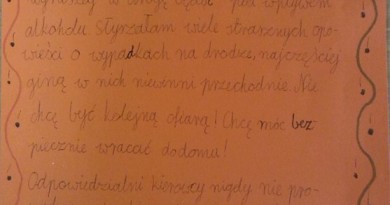 wyruszają w drogę będąc pod wpływem
alkoholu słyszałam wiele strasznych opo-
wieści o wypadkach na drodze, najczęściej
giną w nich niewinni przechodnie. Nie
chcę być kolejną ofiarą! Chcę móc bez-
piecznie wracać do domu!
Odpowiedzialni kierowcy nigdy nie pro-